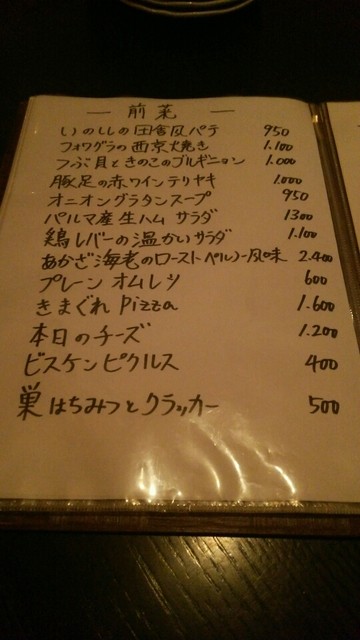 — 前菜 —
いのししの田舎風パテ 950
フォワグラの西京焼き 1.100
つぶ貝ときのこのブルギニョン 1.000
豚足の赤ワインテリヤキ 1.000
オニオングラタンスープ 950
パルマ産生ハム サラダ 1300
鶏レバーの温かいサラダ 1.100
あかざ海老のロースト ペルノー風味 2.400
プレーン オムレツ 600
きまぐれ Pizza 1.600
本日のチーズ 1.200
ビスケンピクルス 400
巣はちみつとクラッカー 500